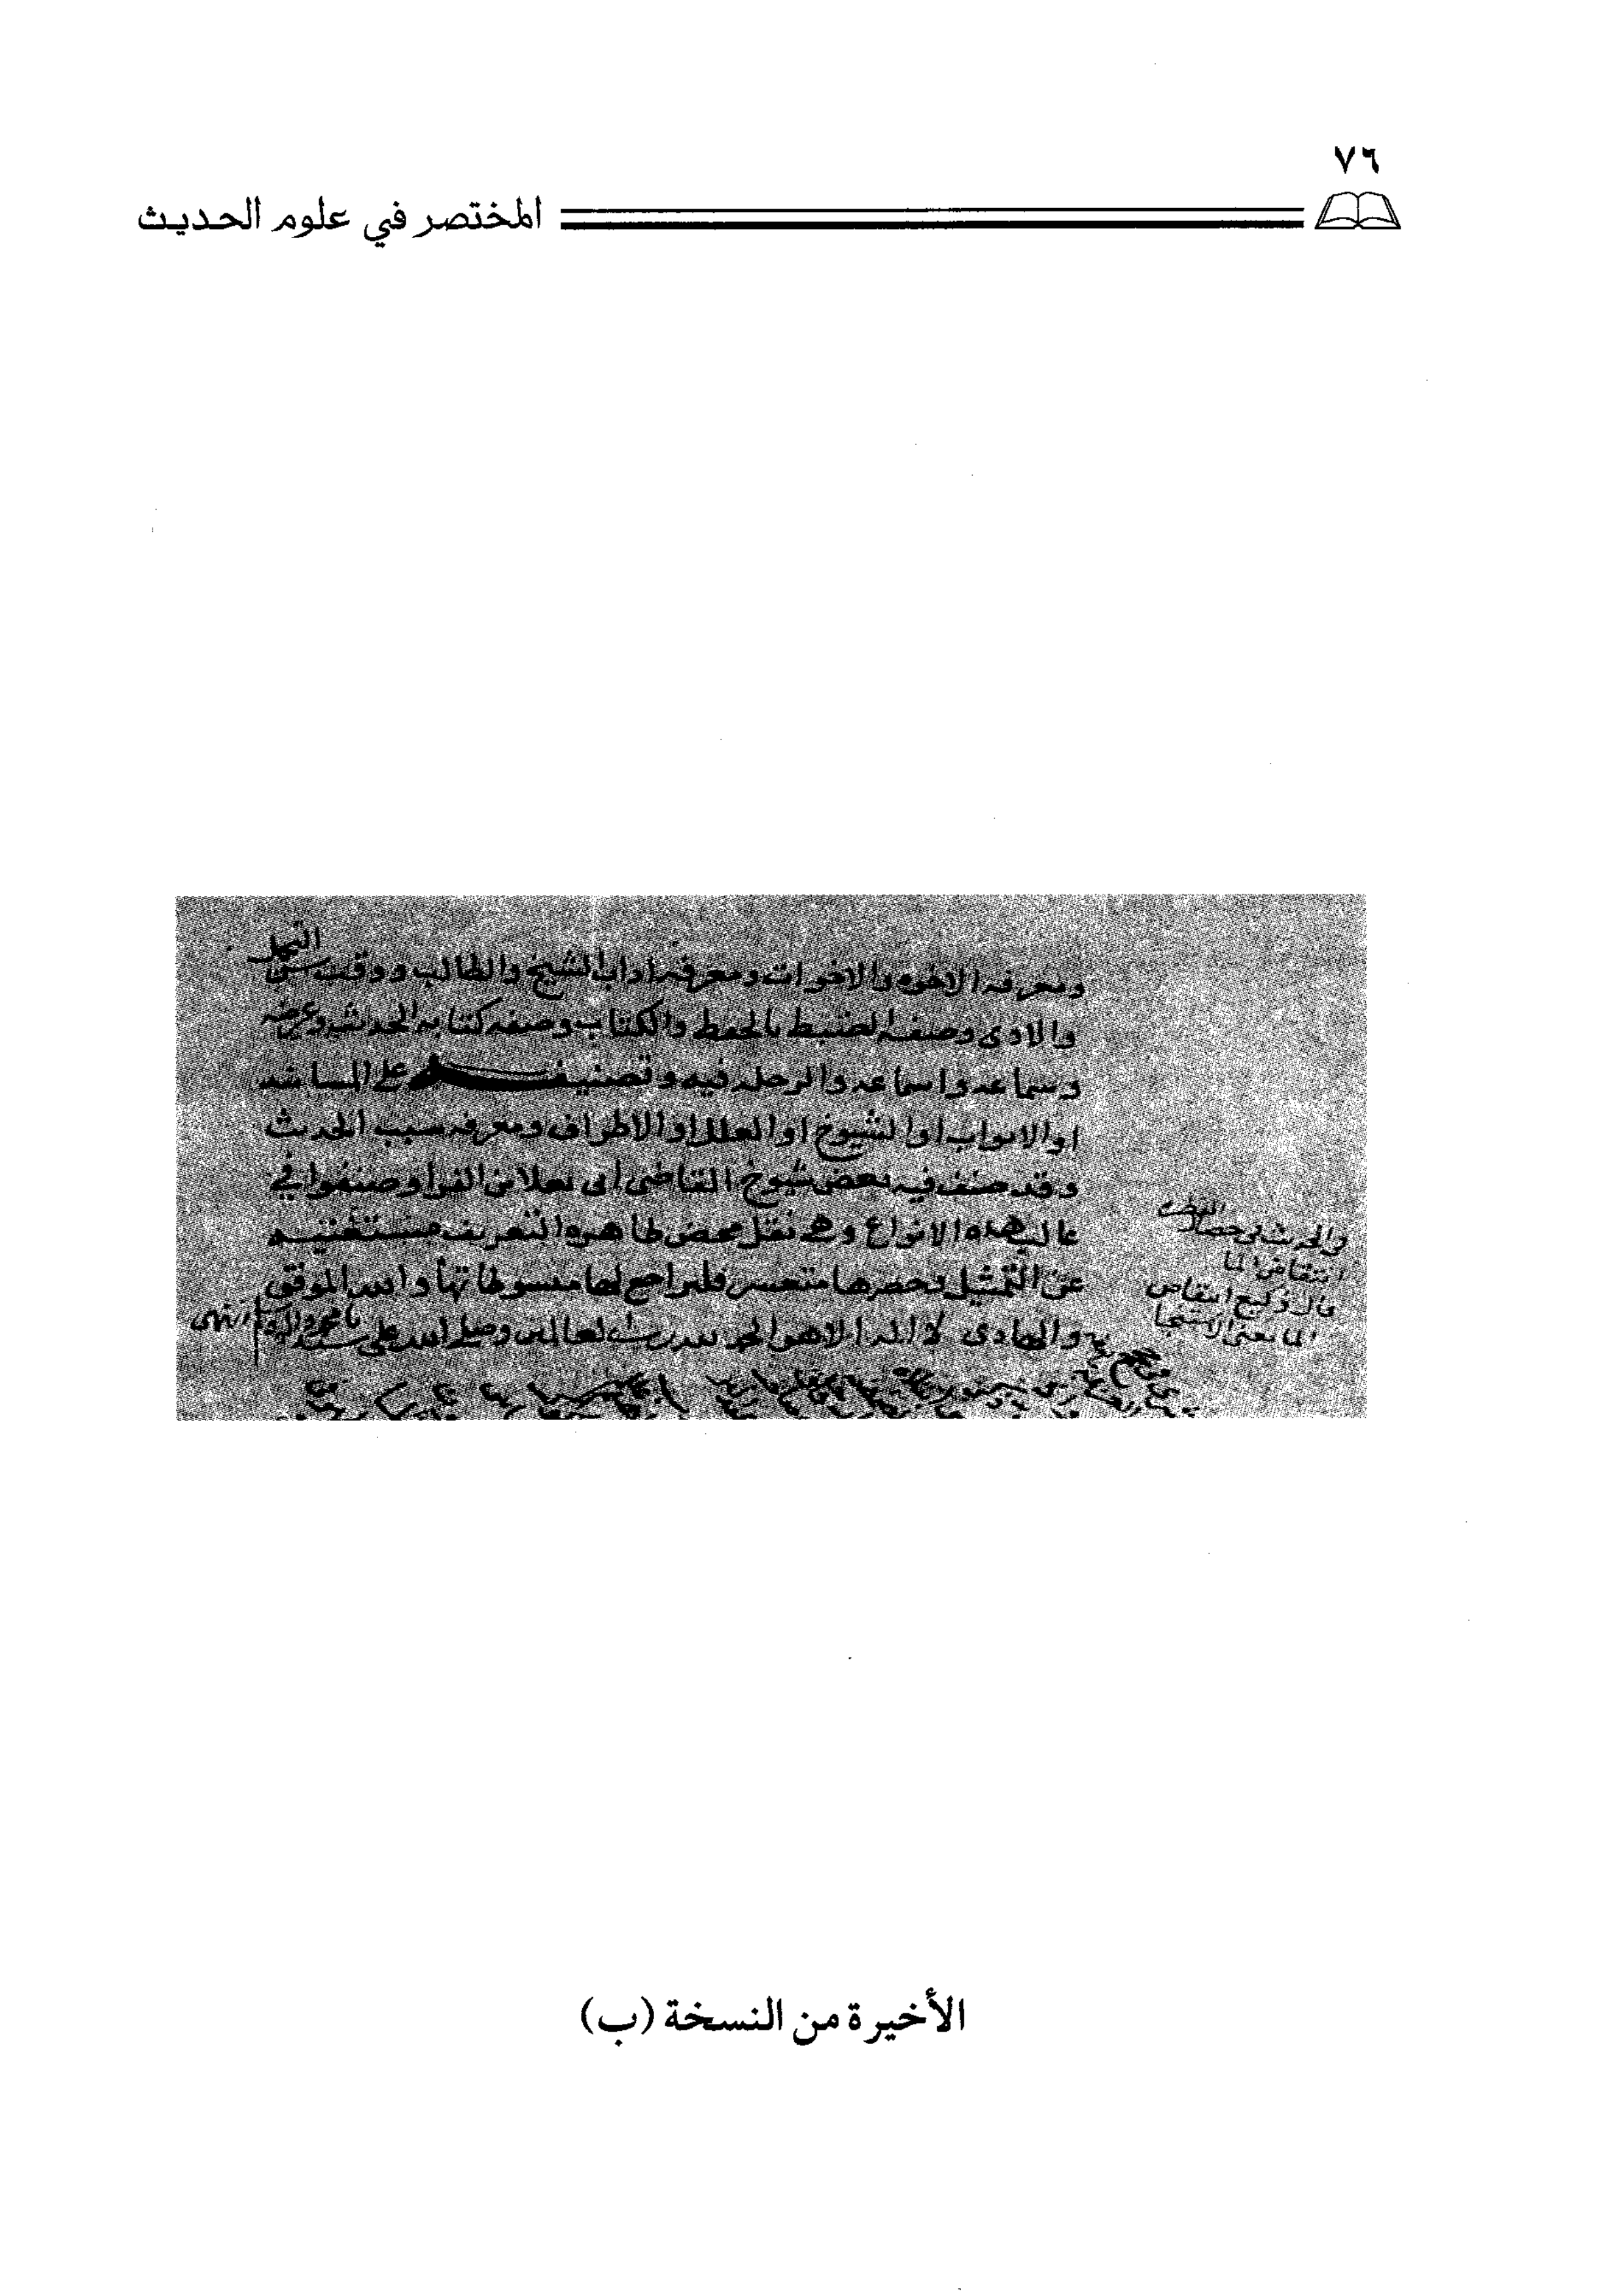 ٧٦
المختصر في علوم الحديث
التحمل
ومعرفه الاخوه والاخوات ومعرفه اداب الشيخ والطالب ووقت سن
والادى وصفه الضبط بالحفظ والكتاب وصفه كتابه الحديث وعرضه
وسماعه واسماعه والرحله فيه وتصنيفه على المسانيد
او الابواب او الشيوخ او العلل او الاطراف ومعرفه سبب الحديث
وقد صنف فيه بعض شيوخ القاضي ابى يعلا بن الفرا وصنفوا في
غالب هذه الانواع وهى نقل محض ظاهره التعريف مستغنيه
عن التمثيل وحصرها متعسر فليراجع لها مبسوطاتها والله الموفق
والهادى لا اله الا هو الحمد لله رب العالمين وصلى الله على سيدنا
والحديث في خصال الفطره
انتقاض الما
قال وكيع انتقاص
الما يعنى الاستنجا
الأخيرة من النسخة (ب)